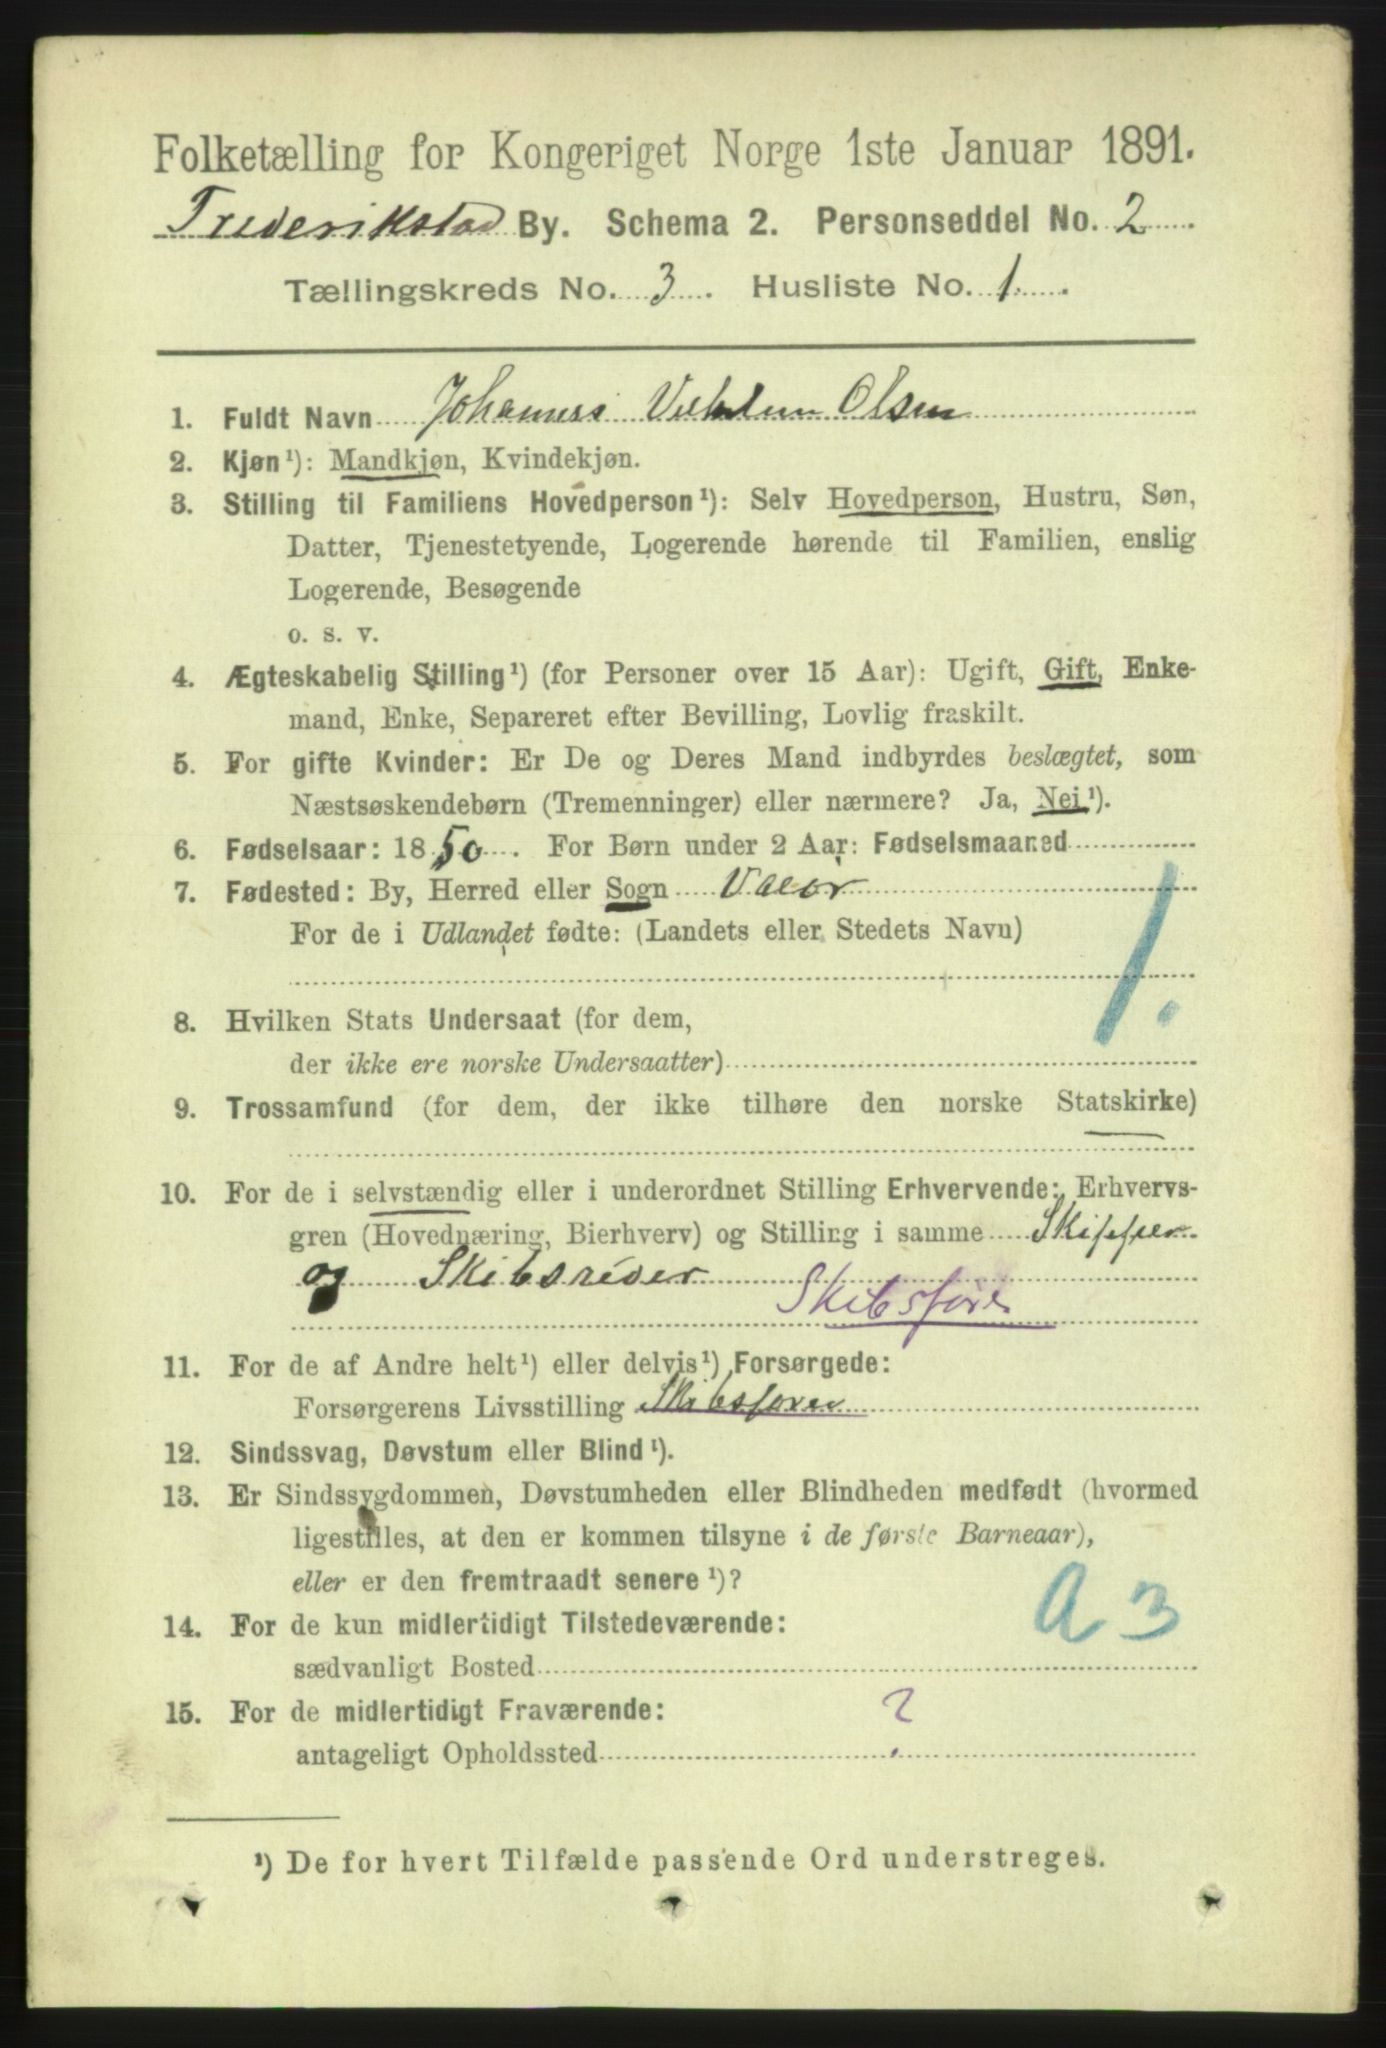 Folketælling for Kongeriget Norge 1ste Januar 1891.
Frederikstad By. Schema 2. Personseddel No. 2
Tællingskreds No. 3. Husliste No. 1.
1. Fuldt Navn Johannes Olsen
2. Kjøn¹): Mandkjøn, Kvindekjøn.
3. Stilling til Familiens Hovedperson¹): Selv Hovedperson, Hustru, Søn,
Datter, Tjenestetyende, Logerende hørende til Familien, enslig
Logerende, Besøgende
o. s. v.
4. Ægteskabelig Stilling¹) (for Personer over 15 Aar): Ugift, Gift, Enke-
mand, Enke, Separeret efter Bevilling, Lovlig fraskilt.
5. For gifte Kvinder: Er De og Deres Mand indbyrdes beslægtet, som
Næstsøskendebørn (Tremenninger) eller nærmere? Ja, Nei¹).
6. Fødselsaar: 1850. For Børn under 2 Aar: Fødselsmaaned
7. Fødested: By, Herred eller Sogn
For de i Udlandet fødte: (Landets eller Stedets Navn)
1.
8. Hvilken Stats Undersaat (for dem,
der ikke ere norske Undersaatter)
9. Trossamfund (for dem, der ikke tilhøre den norske Statskirke)
10. For de i selvstændig eller i underordnet Stilling Erhvervende: Erhvervs-
gren (Hovednæring, Bierhverv) og Stilling i samme Skipper
og Skibsreder Skibsfører
11. For de af Andre helt¹) eller delvis¹) Forsørgede:
Forsørgerens Livsstilling Skibsfører
12. Sindssvag, Døvstum eller Blind¹).
13. Er Sindssygdommen, Døvstumheden eller Blindheden medfødt (hvormed
ligestilles, at den er kommen tilsyne i de første Barneaar),
eller er den fremtraadt senere¹)?
A 3
14. For de kun midlertidigt Tilstedeværende:
sædvanligt Bosted
15. For de midlertidigt Fraværende:
antageligt Opholdssted ?
¹) De for hvert Tilfælde passende Ord understreges.